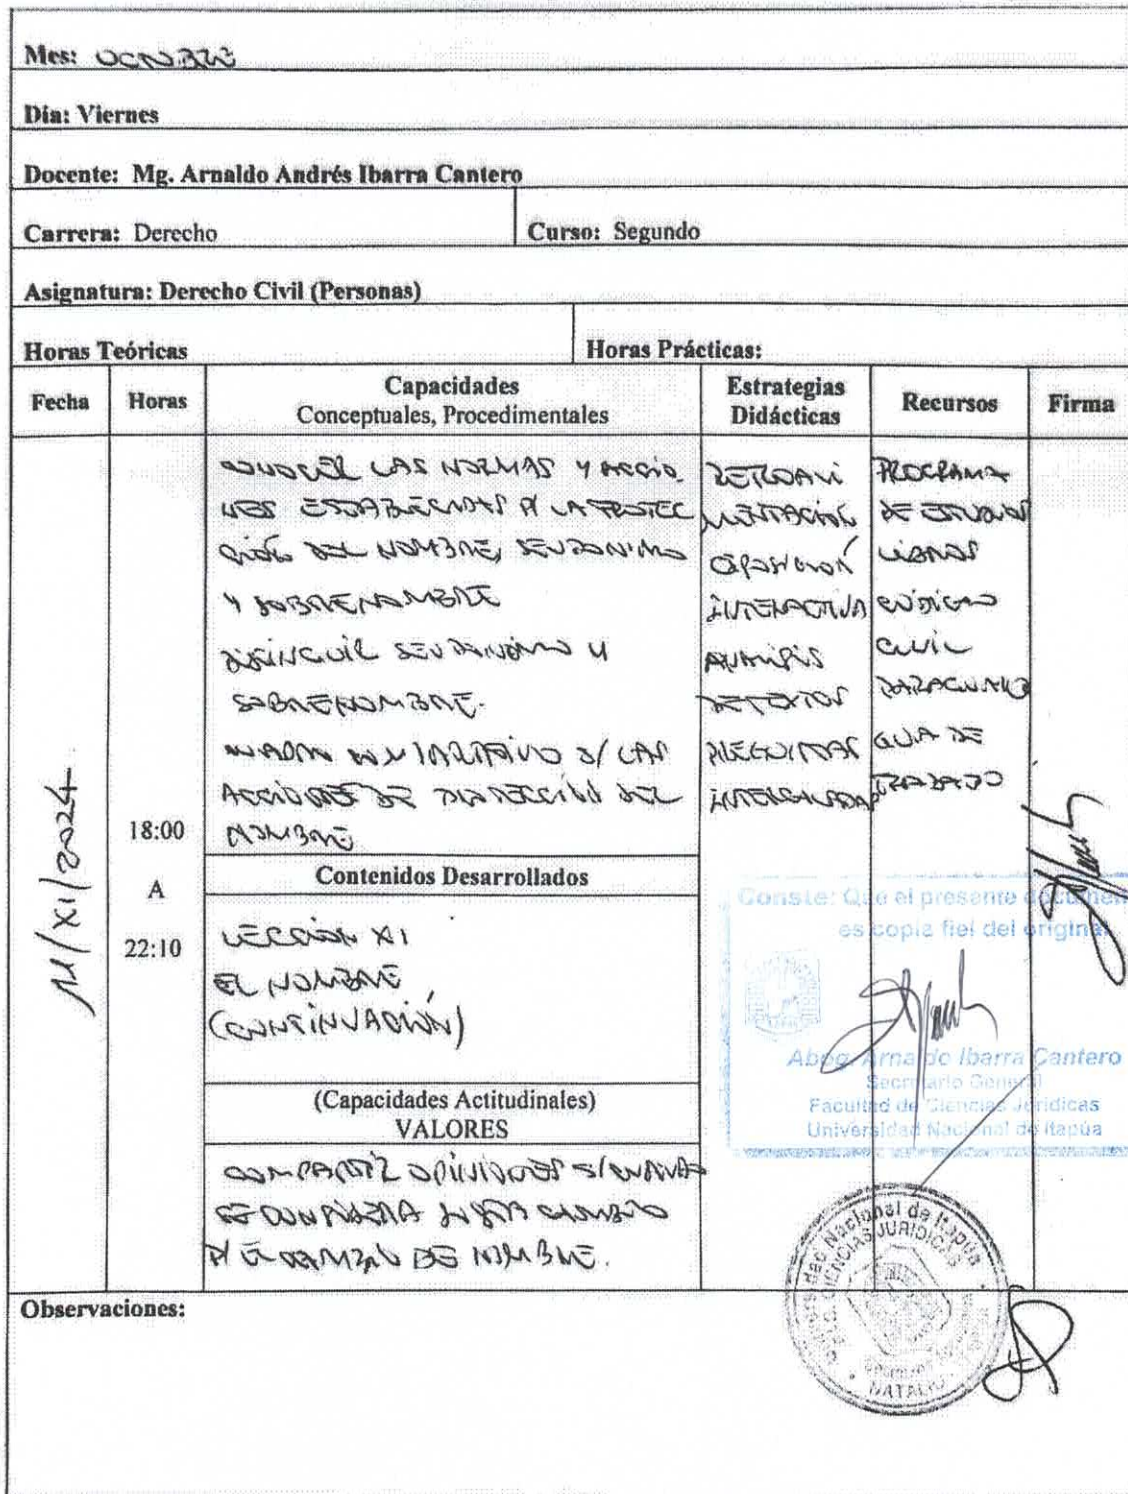 Mes: OCTUBRE
Día: Viernes
Docente: Mg. Arnaldo Andrés Ibarra Cantero
Carrera: Derecho
Curso: Segundo
Asignatura: Derecho Civil (Personas)
Horas Teóricas
Horas Prácticas:
Fecha
Horas
Capacidades
Conceptuales, Procedimentales
Estrategias
Didácticas
Recursos
Firma
11/XI/2024
18:00
A
22:10
CONOCER LAS NORMAS Y ACCIO
NES ESTABLECIDAS P/ LA PROTEC
CIÓN DEL NOMBRE, SEUDONIMO
Y SOBRENOMBRE
DISTINGUIR SEUDONIMO Y
SOBRENOMBRE.
S/ LAS
ACCIONES DE PROTECCIÓN DEL
NOMBRE
RETROALI
MENTACIÓN
EXPOSICIÓN
INTERACTIVA
ANALISIS
DE TEXTOS
PREGUNTAS
INTERCALADAS
PROGRAMA
DE ESTUDIOS
LIBROS
CÓDIGO
CIVIL
PARAGUAYO
GUIA DE
TRABAJO
Contenidos Desarrollados
LECCIÓN XI
EL NOMBRE
(CONTINUACIÓN)
(Capacidades Actitudinales)
VALORES
COMPARTIR OPINIONES S/ CUANDO
SE CONSIDERA JUSTA
P/ EL CAMBIO DE NOMBRE.
Conste: Que el presente documen
es copia fiel del original
Abog. Arnaldo Ibarra Cantero
Secretario General
Facultad de Ciencias Jurídicas
Universidad Nacional de Itapúa
Universidad Nacional de Itapúa
CIENCIAS JURIDICAS
NATALIO
Observaciones: